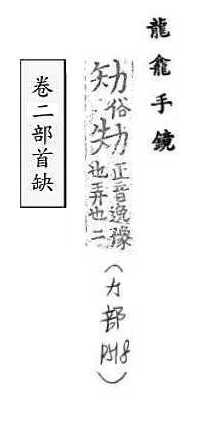 龍龕手鏡
俗劮正音逸豫也弄也二(力部P518)
卷二部首缺